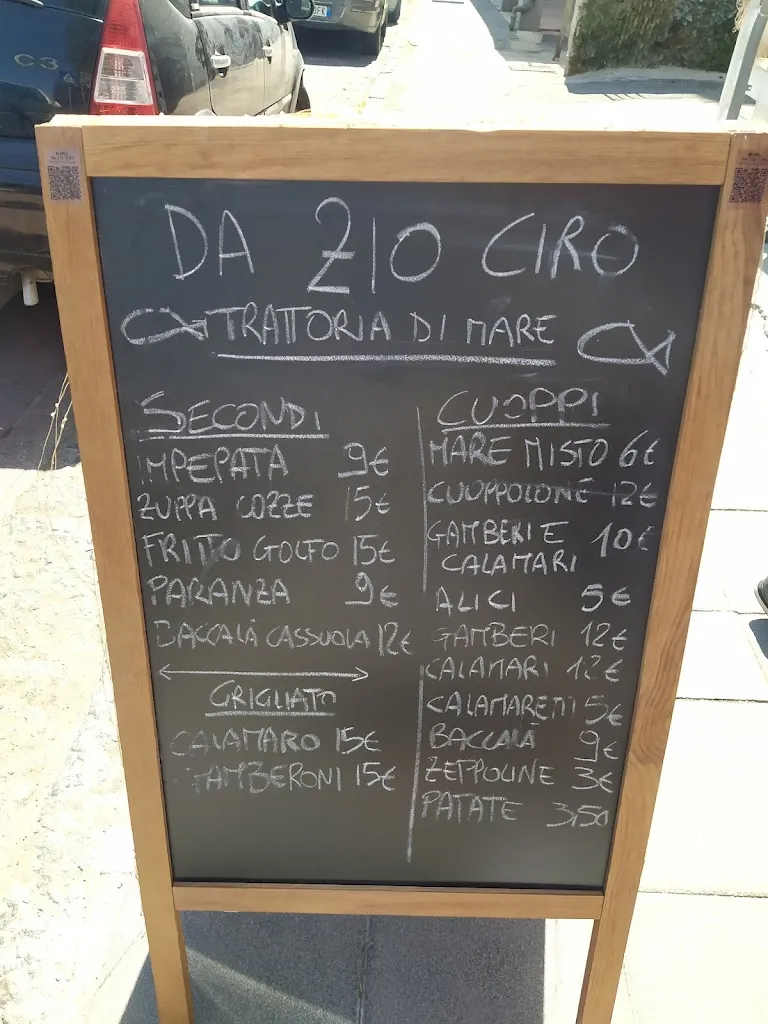 C3
DA ZIO CIRO
TRATTORIA DI MARE
SECONDI
IMPEPATA 9€
ZUPPA COZZE 15€
FRITTO GOLFO 15€
PARANZA 9€
BACCALÀ CASSUOLA 12€
GRIGLIATO
CALAMARO 15€
GAMBERONI 15€
CUOPPI
MARE MISTO 6€
CUOPPOLONE 12€
GAMBERI E 10€
CALAMARI
ALICI 5€
GAMBERI 12€
CALAMARI 12€
CALAMARETTI 5€
BACCALÀ 9€
ZEPPOLINE 3€
PATATE 3,50